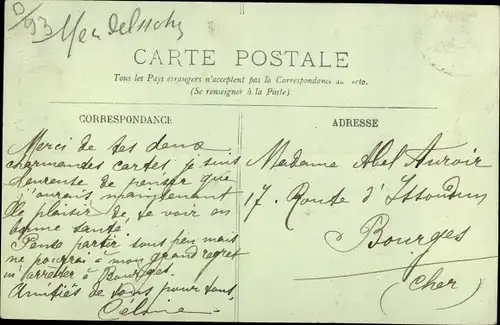 93 Mendelssohn
CARTE POSTALE
Tous les Pays étrangers n'acceptent pas la Correspondance au recto.
(Se renseigner à la Poste).
CORRESPONDANCE
Merci de tes deux
charmandes cartes je suis
heureuse de penser que
j'aurais maintenant
le plaisir de te voir en
bonne santé.
Pense partir sous peu mais
ne pourrai à mon grand regret
m'arreter à Bourges.
Amitiés de tous pour tous,
Céline
ADRESSE
Madame Abel Auroir
17, Route d'Issoudun
Bourges
(Cher)